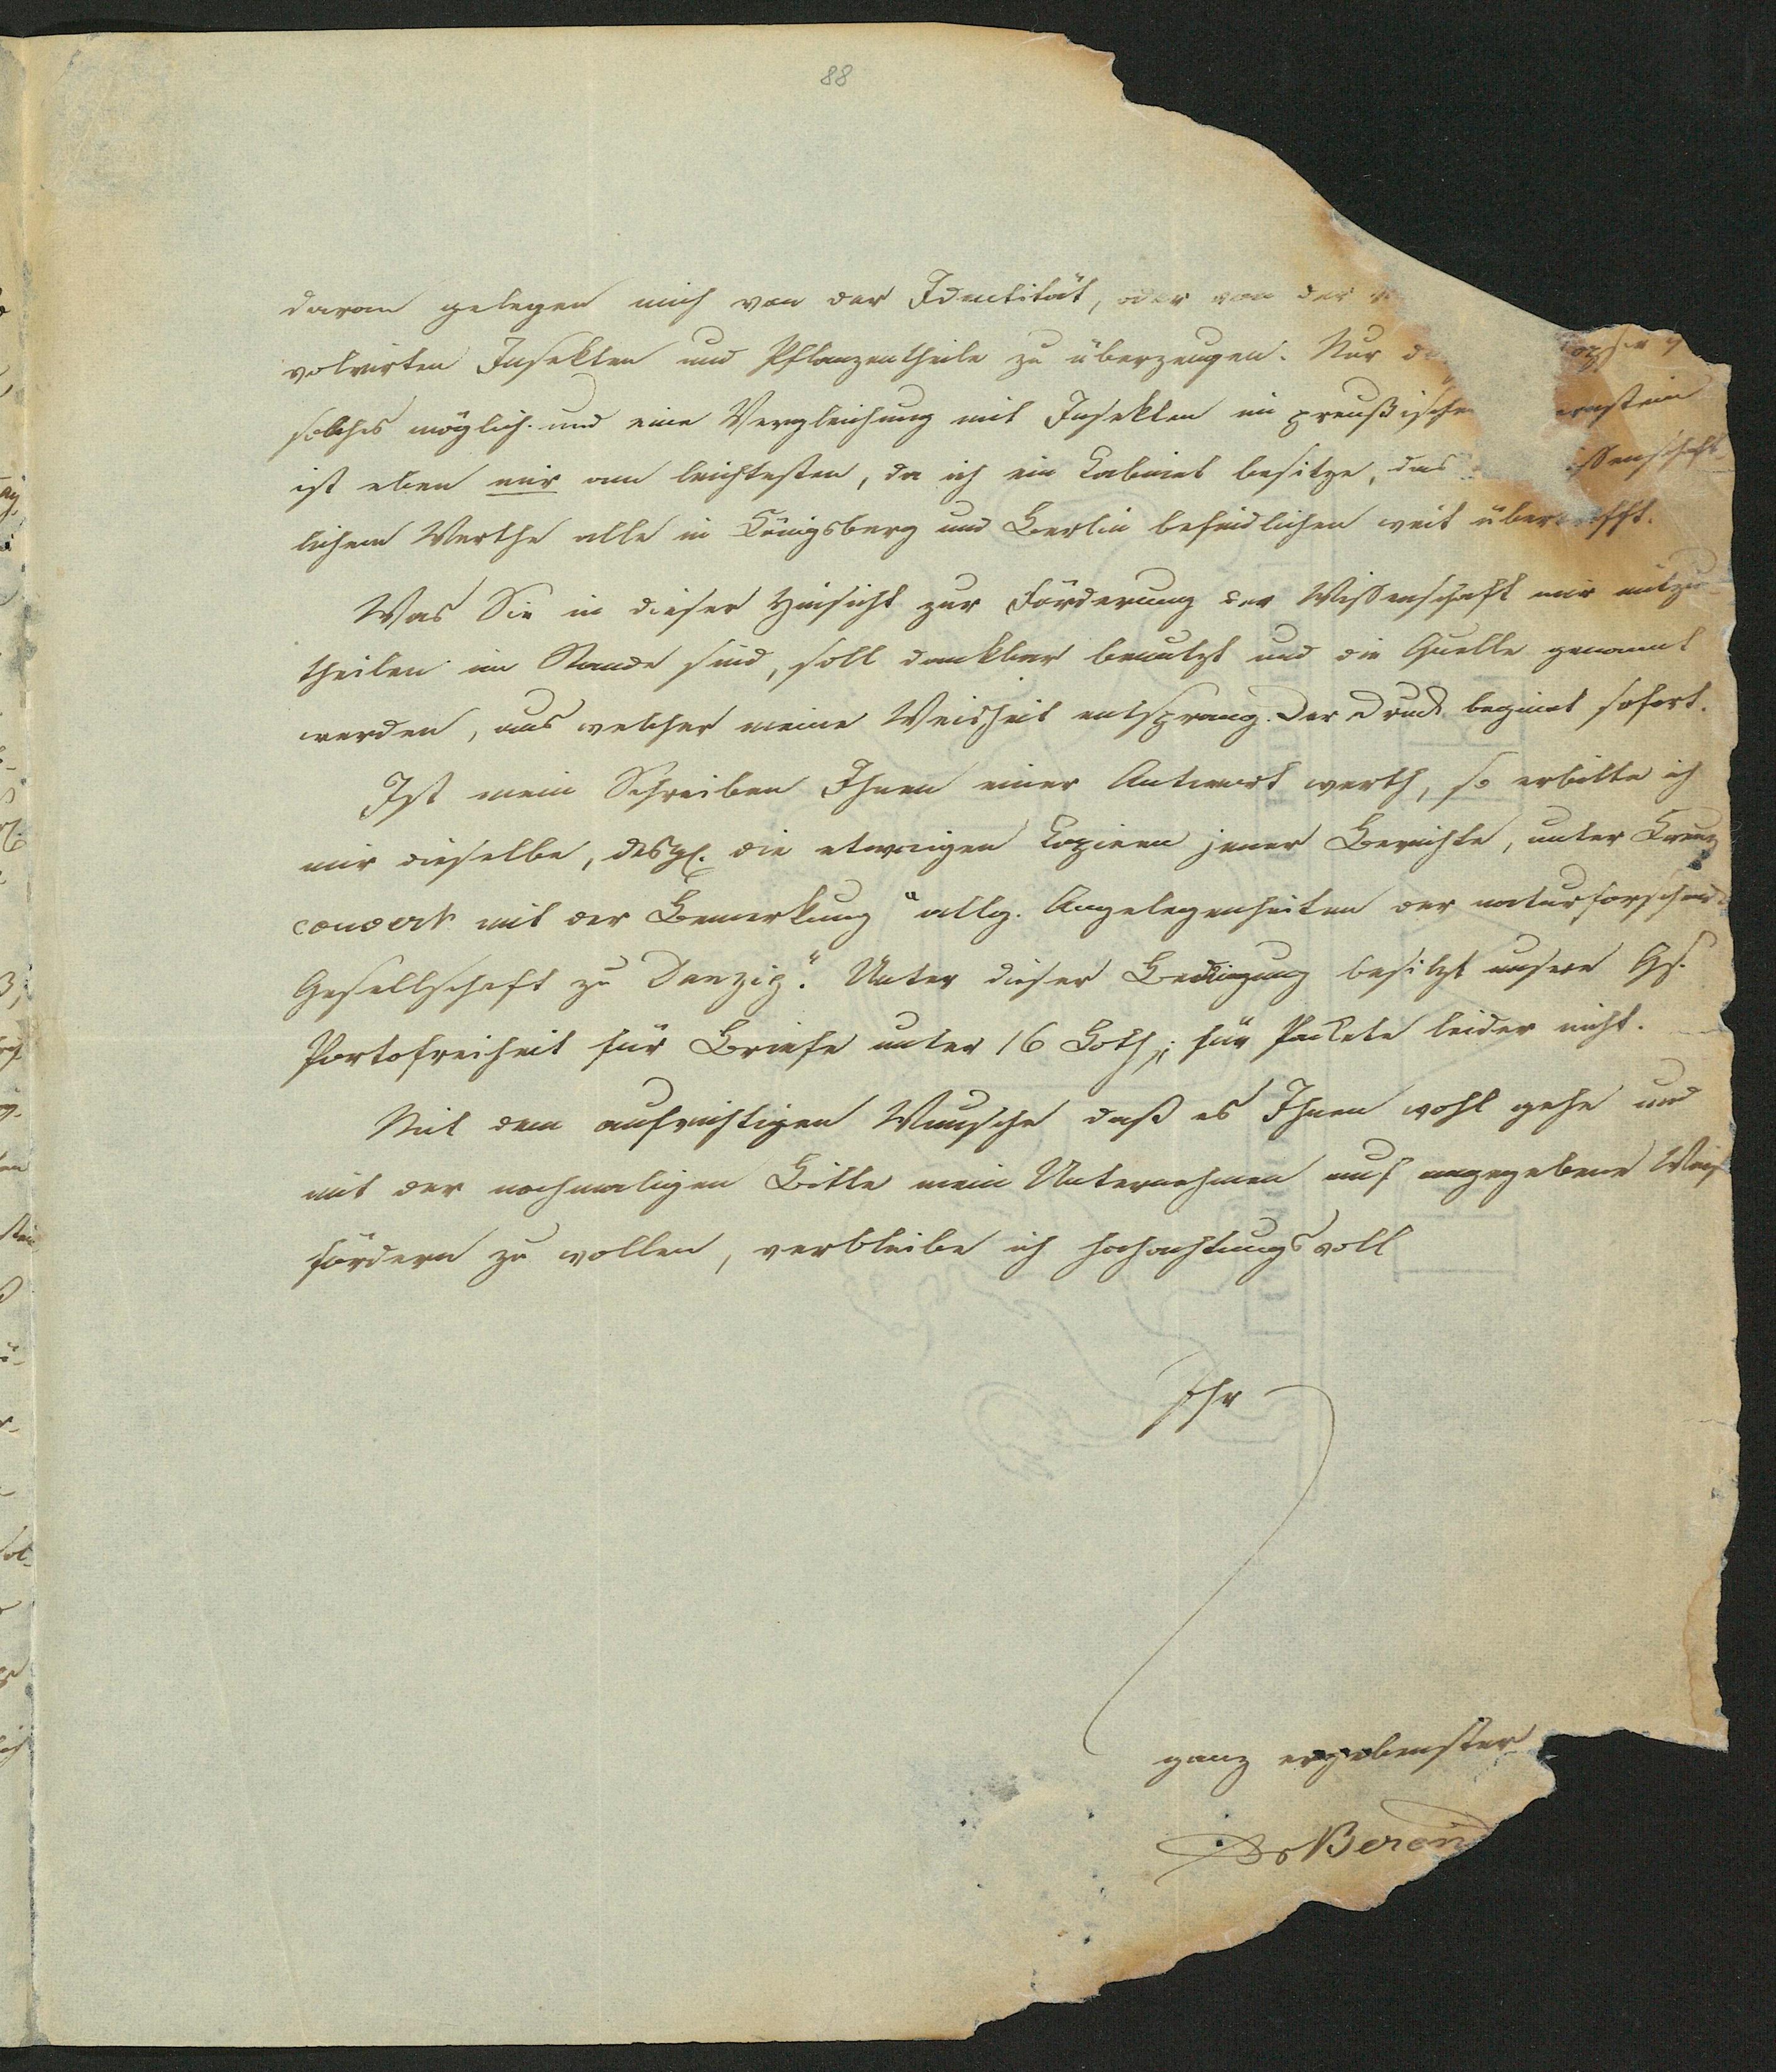 88
daran gelegen mich von der Identität, oder von der
volvirten Insekten und Pflanzentheile zu überzeugen. Nur
solches möglich und eine Vergleichung mit Insekten im preußischen ernstein
ist eben mir am leichtesten, da ich ein Cabinet besitze, das issenschaft-
lichem Werthe alle in Königsberg und Berlin befindlichen weit übertrifft.
Was Sie in dieser Hinsicht zur Förderung der Wissenschaft mir mitzu-
theilen im Stande sind, soll dankbar benutzt und die Quelle genannt
werden, aus welcher meine Weisheit entsprang. Der Druck beginnt sofort.
Ist mein Schreiben Ihnen einer Antwort werth, so erbitte ich
mir dieselbe, desgl. die etwanigen Copieen jener Berichte, unter Kreuz
couvert mit der Bemerkung "allg. Angelegenheiten der naturforschend
Gesellschaft zu Danzig". Unter dieser Bedingung besitzt unsere Gs.
Portofreiheit für Briefe unter 16 Loth; für Packete leider nicht.
Mit dem aufrichtigen Wunsche daß es Ihnen wohl gehe und
mit der nochmaligen Bitte mein Unternehmen auf angegebene Weis
fördern zu wollen, verbleibe ich hochachtungsvoll
Ihr
ganz ergebenster
Dr Berend